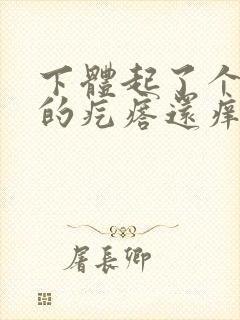 下體起了个
的疙瘩還痒
屠長卿